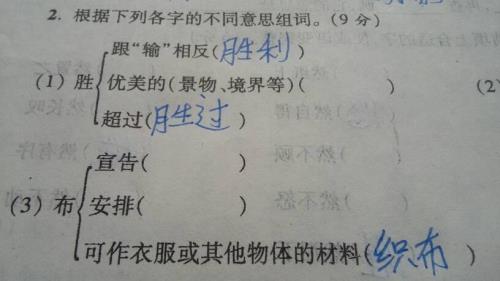 2. 根据下列各字的不同意思组词。(9 分)
跟“输”相反(胜利)
(1) 胜 优美的(景物、境界等)(        )
(2)
超过(胜过)
宣告(        )
(3) 布 安排(        )
可作衣服或其他物体的材料(织布)